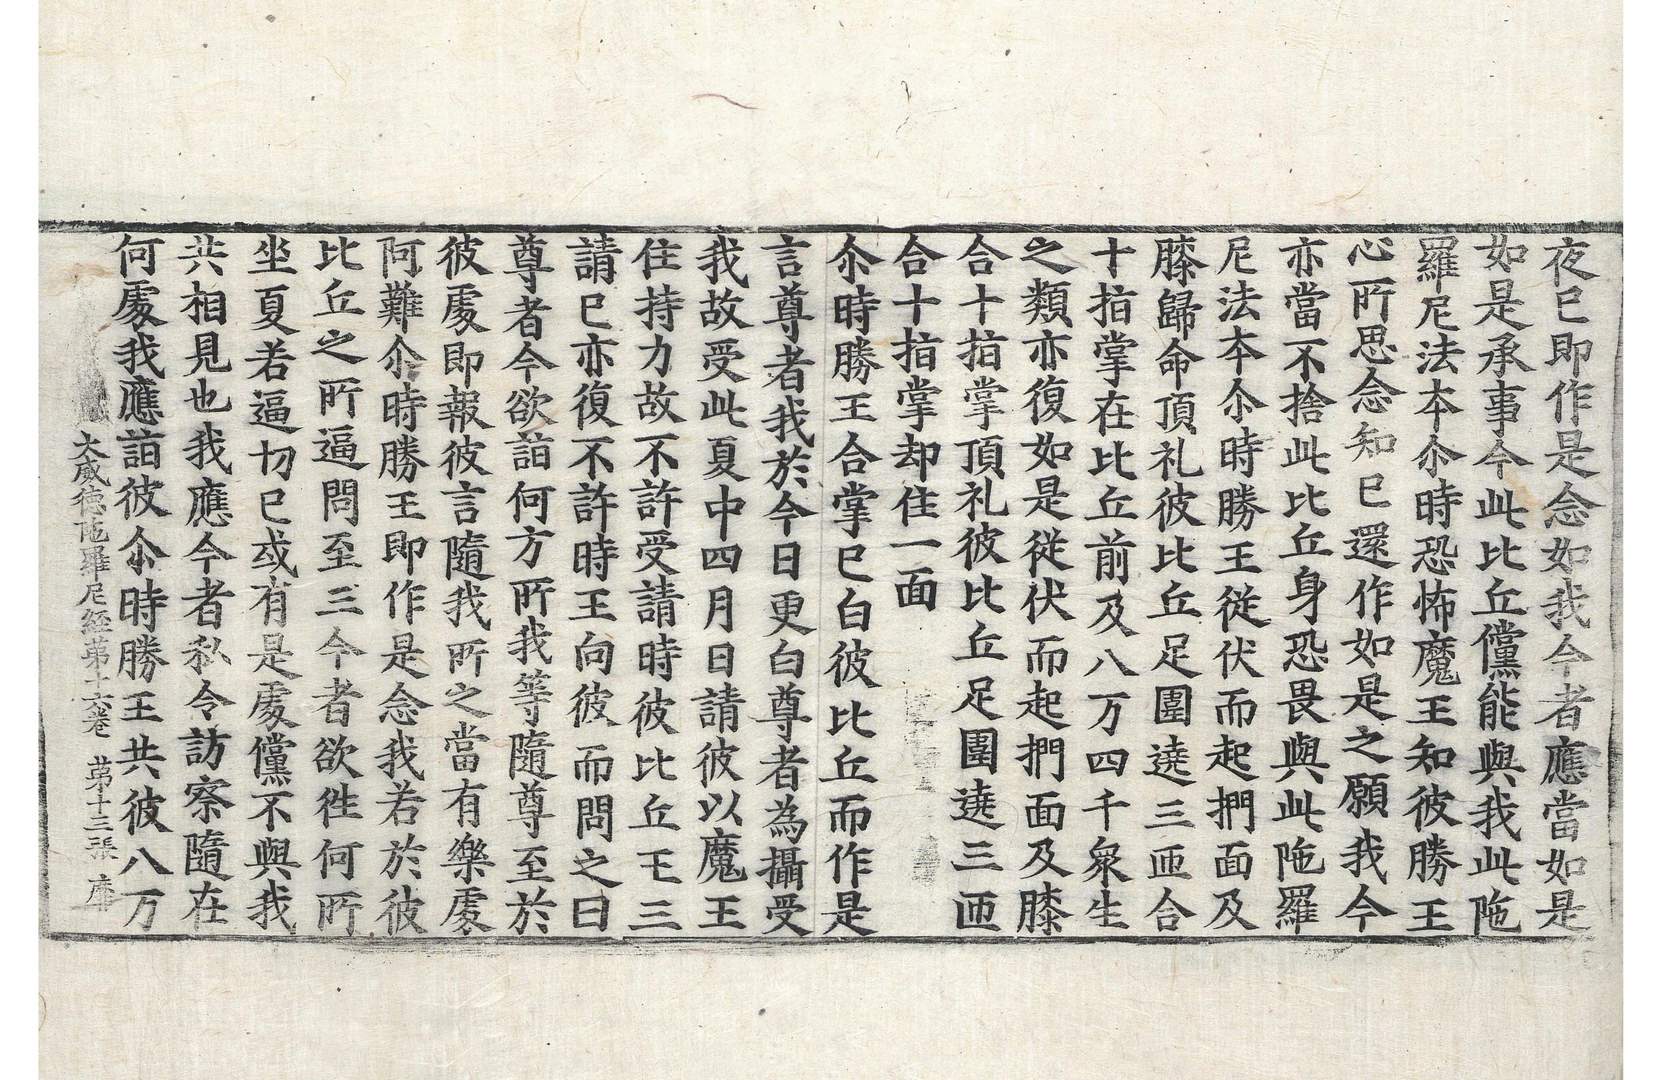 夜已即作是念如我今者應當如是
如是承事今此比丘儻能與我此陁
羅尼法夲尒時恐怖魔王知彼勝王
心所思念知已還作如是之願我今
亦當不捨此比丘身恐畏與此陁羅
尼法夲尒時勝王従伏而起捫面及
膝歸命頂礼彼比丘足圍遶三迊合
十指掌在比丘前及八万四千衆生
之類亦復如是従伏而起捫面及膝
合十指掌頂礼彼比丘足圍遶三迊
合十指掌却住一面
尒時勝王合掌已白彼比丘而作是
言尊者我於今日更白尊者為攝受
我故受此夏中四月日請彼以魔王
住持力故不許受請時彼比丘王三
請已亦復不許時王向彼而問之曰
尊者今欲詣何方所我等隨尊至於
彼處即報彼言隨我所之當有樂處
阿難尒時勝王即作是念我若於彼
比丘之所逼問至三今者欲徃何所
坐夏若逼切已或有是處儻不與我
共相見也我應今者私令訪察隨在
何處我應詣彼尒時勝王共彼八万
大威徳陁羅尼經第十六卷 第十三張 庫